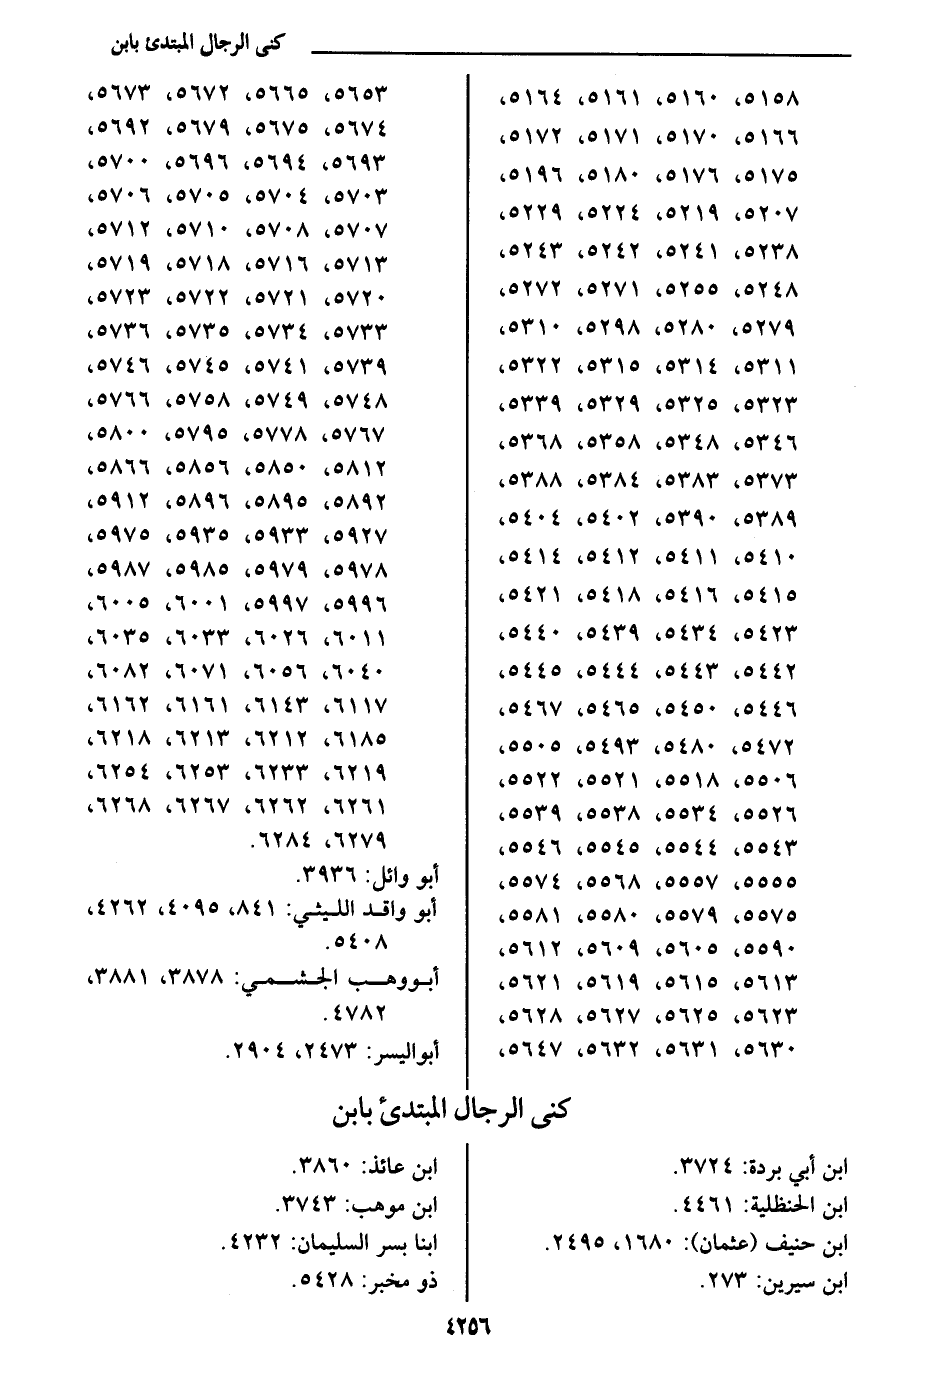 كنى الرجال المبتدئ بابن
٥١٥٨، ٥١٦٠، ٥١٦١، ٥١٦٤،
٥١٦٦، ٥١٧٠، ٥١٧١، ٥١٧٢،
٥١٧٥، ٥١٧٦، ٥١٨٠، ٥١٩٦،
٥٢٠٧، ٥٢١٩، ٥٢٢٤، ٥٢٢٩،
٥٢٣٨، ٥٢٤١، ٥٢٤٢، ٥٢٤٣،
٥٢٤٨، ٥٢٥٥، ٥٢٧١، ٥٢٧٢،
٥٢٧٩، ٥٢٨٠، ٥٢٩٨، ٥٣١٠،
٥٣١١، ٥٣١٤، ٥٣١٥، ٥٣٢٢،
٥٣٢٣، ٥٣٢٥، ٥٣٢٩، ٥٣٣٩،
٥٣٤٦، ٥٣٤٨، ٥٣٥٨، ٥٣٦٨،
٥٣٧٣، ٥٣٨٣، ٥٣٨٤، ٥٣٨٨،
٥٣٨٩، ٥٣٩٠، ٥٤٠٢، ٥٤٠٤،
٥٤١٠، ٥٤١١، ٥٤١٢، ٥٤١٤،
٥٤١٥، ٥٤١٦، ٥٤١٨، ٥٤٢١،
٥٤٢٣، ٥٤٣٤، ٥٤٣٩، ٥٤٤٠،
٥٤٤٢، ٥٤٤٣، ٥٤٤٤، ٥٤٤٥،
٥٤٤٦، ٥٤٥٠، ٥٤٦٥، ٥٤٦٧،
٥٤٧٢، ٥٤٨٠، ٥٤٩٣، ٥٥٠٥،
٥٥٠٦، ٥٥١٨، ٥٥٢١، ٥٥٢٢،
٥٥٢٦، ٥٥٣٤، ٥٥٣٨، ٥٥٣٩،
٥٥٤٣، ٥٥٤٤، ٥٥٤٥، ٥٥٤٦،
٥٥٥٥، ٥٥٥٧، ٥٥٦٨، ٥٥٧٤،
٥٥٧٥، ٥٥٧٩، ٥٥٨٠، ٥٥٨١،
٥٥٩٠، ٥٦٠٥، ٥٦٠٩، ٥٦١٢،
٥٦١٣، ٥٦١٥، ٥٦١٩، ٥٦٢١،
٥٦٢٣، ٥٦٢٥، ٥٦٢٧، ٥٦٢٨،
٥٦٣٠، ٥٦٣١، ٥٦٣٢، ٥٦٤٧،
٥٦٥٣، ٥٦٦٥، ٥٦٧٢، ٥٦٧٣،
٥٦٧٤، ٥٦٧٥، ٥٦٧٩، ٥٦٩٢،
٥٦٩٣، ٥٦٩٤، ٥٦٩٦، ٥٧٠٠،
٥٧٠٣، ٥٧٠٤، ٥٧٠٥، ٥٧٠٦،
٥٧٠٧، ٥٧٠٨، ٥٧١٠، ٥٧١٢،
٥٧١٣، ٥٧١٦، ٥٧١٨، ٥٧١٩،
٥٧٢٠، ٥٧٢١، ٥٧٢٢، ٥٧٢٣،
٥٧٣٣، ٥٧٣٤، ٥٧٣٥، ٥٧٣٦،
٥٧٣٩، ٥٧٤١، ٥٧٤٥، ٥٧٤٦،
٥٧٤٨، ٥٧٤٩، ٥٧٥٨، ٥٧٦٦،
٥٧٦٧، ٥٧٧٨، ٥٧٩٥، ٥٨٠٠،
٥٨١٢، ٥٨٥٠، ٥٨�٦، ٥٨٦٦،
٥٨٩٢، ٥٨٩٥، ٥٨٩٦، ٥٩١٢،
٥٩٢٧، ٥٩٣٣، ٥٩٣٥، ٥٩٧٥،
٥٩٧٨، ٥٩٧٩، ٥٩٨٥، ٥٩٨٧،
٥٩٩٦، ٥٩٩٧، ٦٠٠١، ٦٠٠٥،
٦٠١١، ٦٠٢٦، ٦٠٣٣، ٦٠٣٥،
٦٠٤٠، ٦٠٥٦، ٦٠٧١، ٦٠٨٢،
٦١١٧، ٦١٤٣، ٦١٦١، ٦١٦٢،
٦١٨٥، ٦٢١٢، ٦٢١٣، ٦٢١٨،
٦٢١٩، ٦٢٣٣، ٦٢٥٣، ٦٢٥٤،
٦٢٦١، ٦٢٦٢، ٦٢٦٧، ٦٢٦٨،
٦٢٧٩، ٦٢٨٤.
أبو وائل: ٣٩٣٦.
أبو واقد الليثي: ٨٤١، ٤٠٩٥، ٤٢٦٢،
٥٤٠٨.
أبووهب الجشمي: ٣٨٧٨، ٣٨٨١،
٤٧٨٢.
أبواليسر: ٢٤٧٣، ٢٩٠٤.
كنى الرجال المبتدئ بابن
ابن أبي بردة: ٣٧٢٤.
ابن الحنظلية: ٤٤٦١.
ابن حنيف (عثمان): ١٦٨٠، ٢٤٩٥.
ابن سيرين: ٢٧٣.
ابن عائذ: ٣٨٦٠.
ابن موهب: ٣٧٤٣.
ابنا بسر السليمان: ٤٢٣٢.
ذو مخبر: ٥٤٢٨.
٤٢٥٦